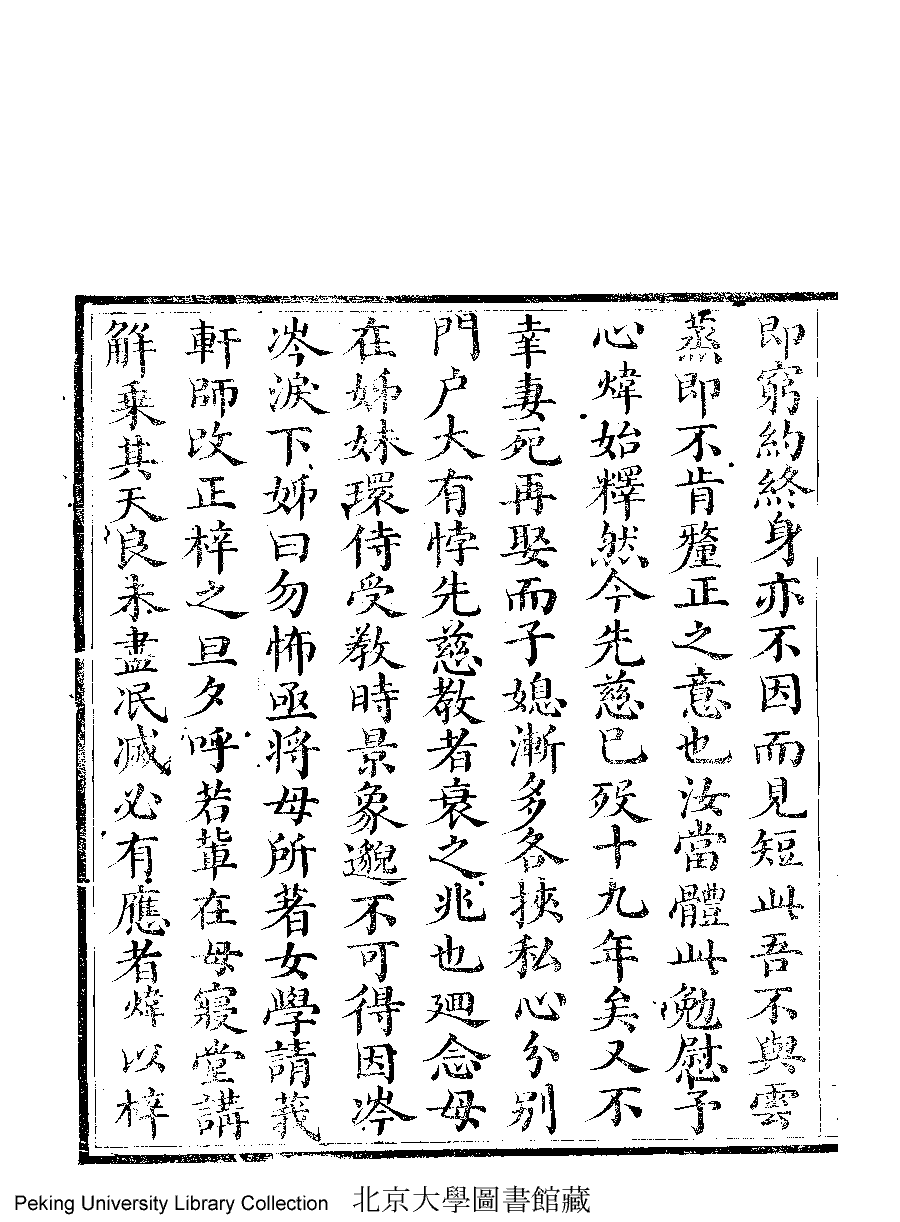 即窮約終身亦不因而見短此吾不與雲
蒸即不肯釐正之意也汝當體此勉慰予
心煒始釋然今先慈已歿十九年矣又不
幸妻死再娶而子媳漸多各挾私心分別
門户大有悖先慈教者衰之兆也廻念母
在姊妹環侍受教時景象邈不可得因涔
涔淚下姊曰勿怖亟將母所著女學請莪
軒師改正梓之旦夕呼若輩在母寢堂講
解乗其天良未盡泯滅必有應者煒以梓
Peking University Library Collection 北京大學圖書館藏